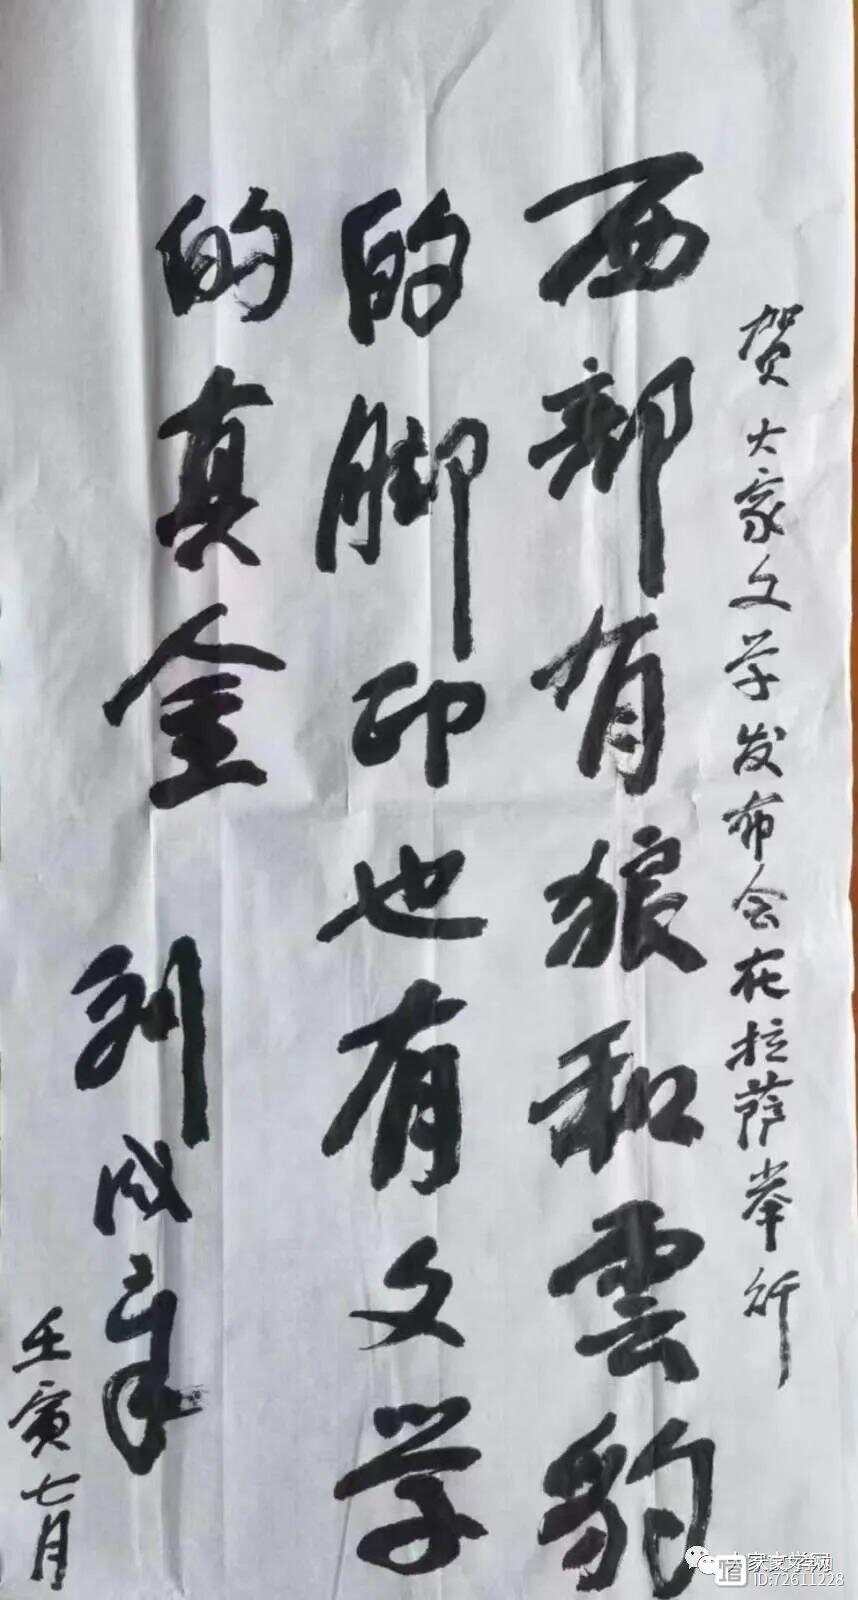 贺大家文学发布会在拉萨举行
西部有狼和雲豹
的脚印也有文学
的真金
刘成章
壬寅七月
大家文学网
ID:72611228